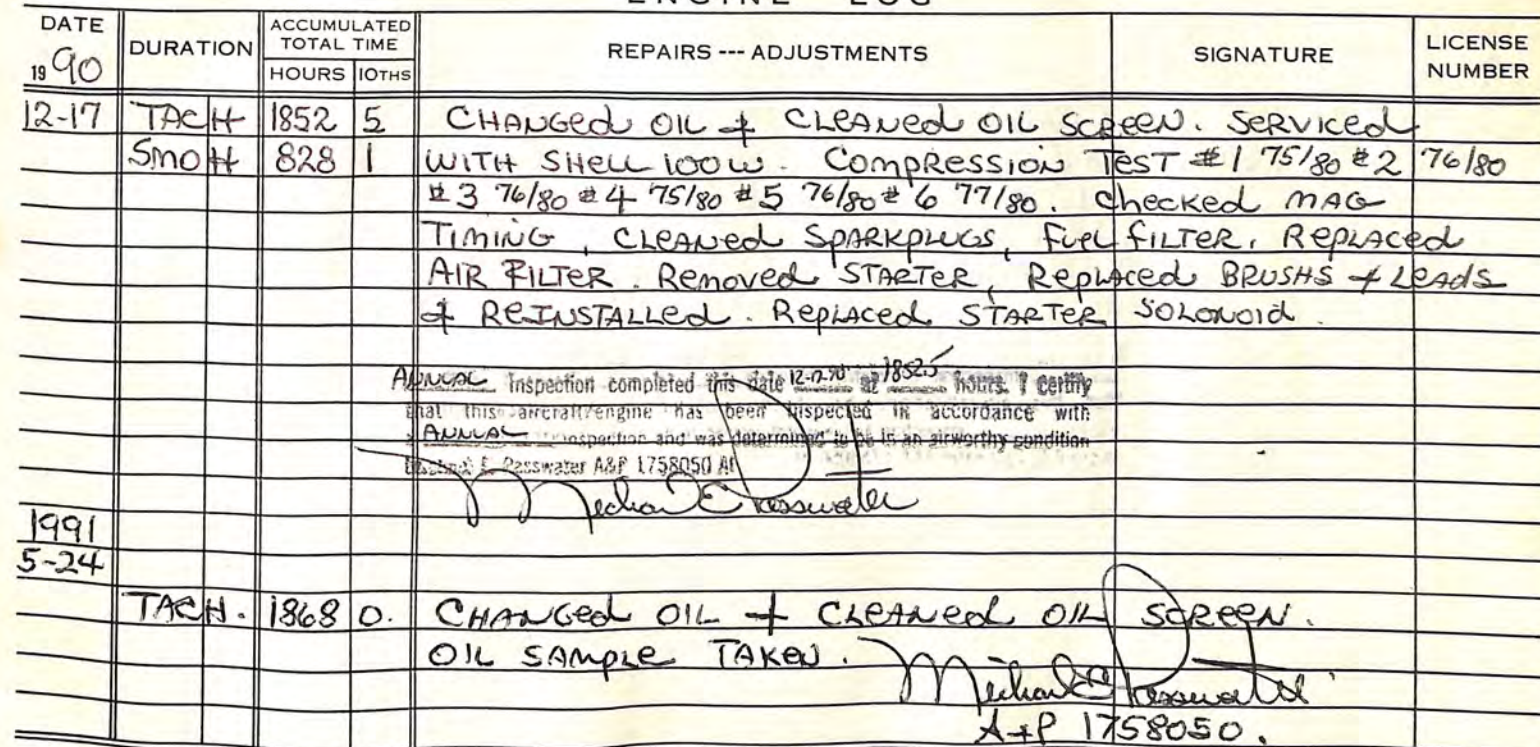 ENGINE LOG
DATE DURATION ACCUMULATED TOTAL TIME REPAIRS --- ADJUSTMENTS SIGNATURE LICENSE NUMBER
19 90 HOURS 10THS
12-17 TACH 1852 5 CHANGed OIL + CLEANed OIL SCREEN. SERVICEd
SMOH 828 1 WITH SHELL 100W. COMPRESSION TEST #1 75/80 #2 76/80
#3 76/80 #4 75/80 #5 76/80 #6 77/80. Checked MAG
TIMING, CLEANed SPARKPLUGS, FUEL FILTER, REPLACED
AIR FILTER. Removed STARTER, Replaced BRUSHS + LEADS
+ REINSTALLed. REPLACed STARTER SOLONOID.
ANNUAL Inspection completed this date 12-17-90 at 1852.5 hours. I certify
that this aircraft/engine has been inspected in accordance with
ANNUAL inspection and was determined to be is an airworthy condition
E. Passwater A&P 1758050 AI
Michael E Passwater
1991
5-24
TACH. 1868 0. CHANGed OIL + CLEANed OIL SCREEN.
OIL SAMPLE TAKEN.
Michael E Passwater
A+P 1758050.